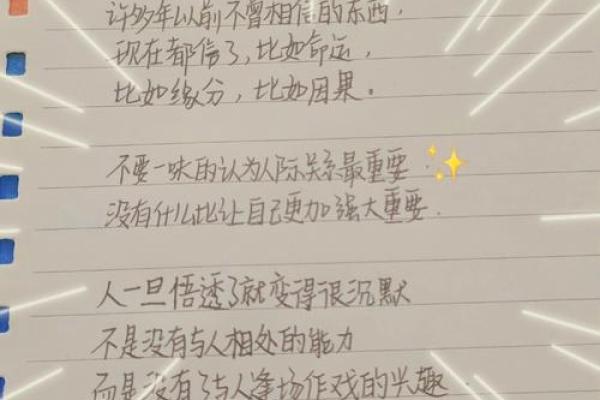 许多年以前不曾相信的东西，
现在都信了，比如命运，
比如缘分，比如因果。
不要一味的认为人际关系最重要．
没有什么比让自己更加强大重要．
人一旦悟透了就变得很沉默
不是没有与人相处的能力
而是没有了与人逢场作戏的兴趣．